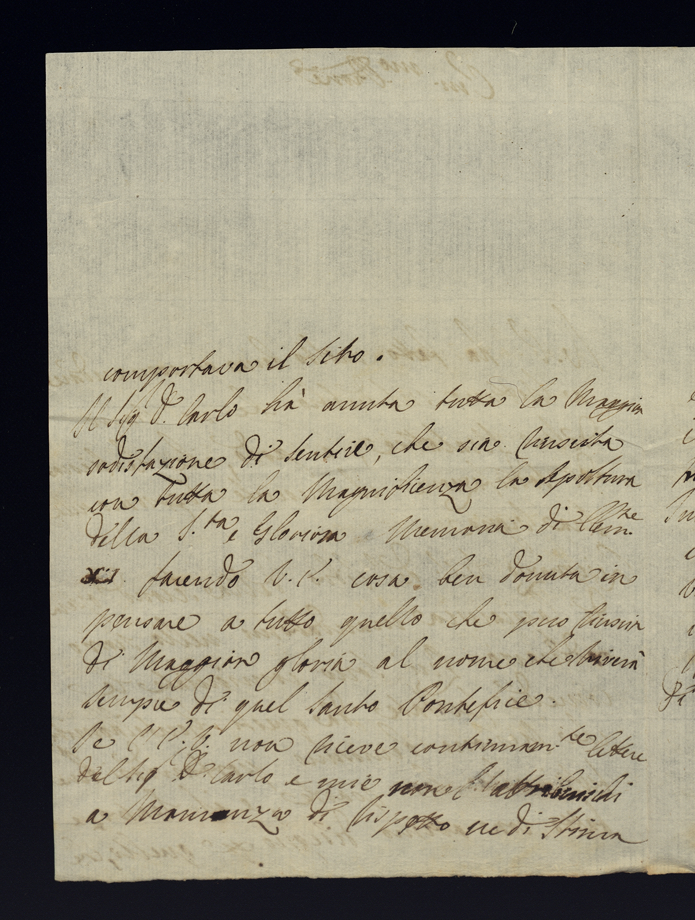 comportava il sito.
Il Sig.r D. Carlo hà avuta tutta la Maggior
sodisfazione di sentire, che sia riuscita
con tutta la Magnificenza la
della S.ta e Gloriosa Memoria di Clem.te
XII facendo V. E. cosa ben dovuta in
pensare a tutto quello che puo riusir
di Maggior gloria al nome che viverà
sempre di quel Santo Pontefice.
Se V. non riceve continuam.te lettere
del Sig.r D. Carlo e mie non l'attribuischi
a Mancanza di rispetto ne di Stima